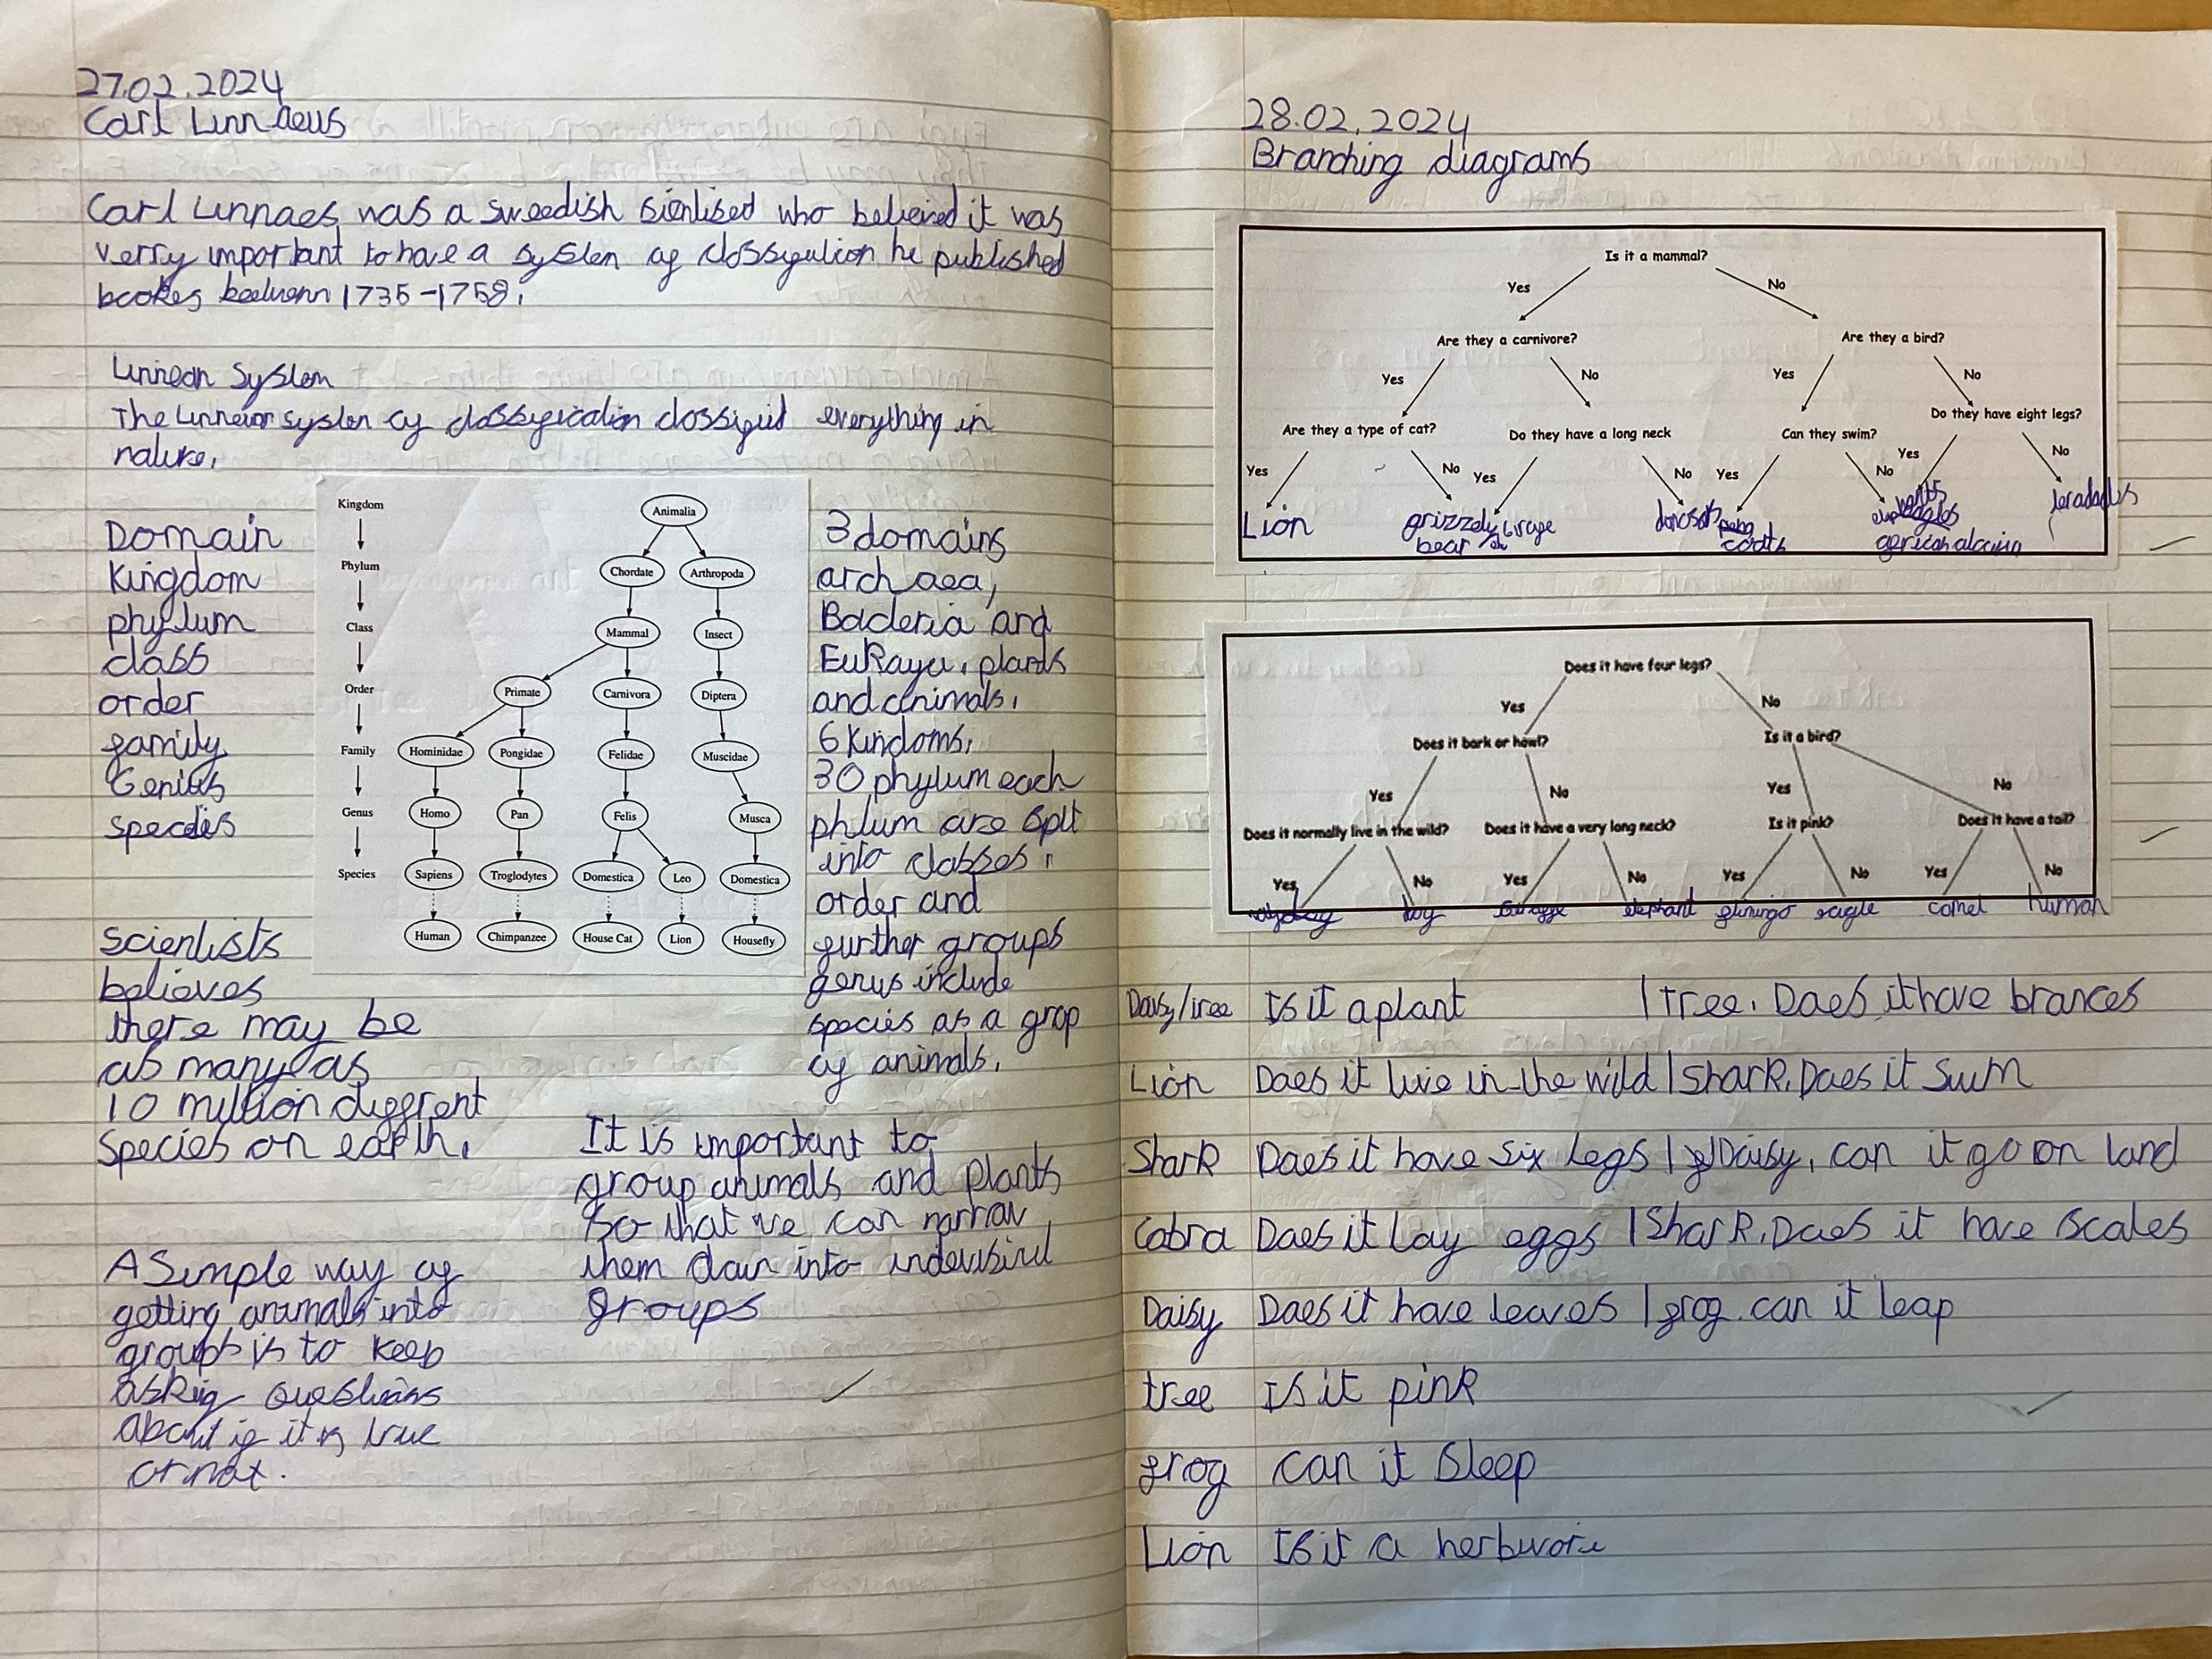 27.02.2024
Carl Linnaeus
Carl Linnaes was a sweedish sientised who believed it was
verry important to have a system of classification he published
bookes 1735-1758.
Linnean System
The Linnean system of classification classified everything in
nature.
Domain
Kingdom
phylum
class
order
family
Genius
species
Kingdom
Phylum
Class
Order
Family
Genus
Species
Animalia
Chordate Arthropoda
Mammal Insect
Primate Carnivora Diptera
Hominidae Pongidae Felidae Muscidae
Homo Pan Felis Musca
Sapiens Troglodytes Domestica Leo Domestica
Human Chimpanzee House Cat Lion Housefly
3 domains
archaea,
Bacteria and
plants
and animals.
6 kindoms.
30 phylum each
phlum are split
into classes.
order and
further groups
genus include
species as a grop
of animals.
Scientists
believes
there may be
as many as
10 million diffrent
Species on earth.
It is important to
group animals and plants
so that we can narrow
them down into
groups
A Simple way of
getting animals into
groups is to keep
asking questions
about if it is true
or not.
28.02.2024
Branching diagrams
Is it a mammal?
Yes No
Are they a carnivore? Are they a bird?
Yes No Yes No
Are they a type of cat? Do they have a long neck Can they swim? Do they have eight legs?
Yes No Yes No Yes No Yes No
Lion grizzely
bear
Does it have four legs?
Yes No
Does it bark or howl? Is it a bird?
Yes No Yes No
Does it normally live in the wild? Does it have a very long neck? Is it pink? Does it have a tail?
Yes No Yes No Yes No Yes No
elephant flimingo eagle camel human
Daisy/tree Is it a plant | Tree. Does it have brances
Lion Does it live in the wild | shark. Does it swim
Shark Does it have six legs | Daisy. can it go on land
Cobra Does it lay eggs | Shark. Does it have scales
Daisy Does it have leaves | frog. can it leap
tree Is it pink
frog can it sleep
Lion Is it a herbivore